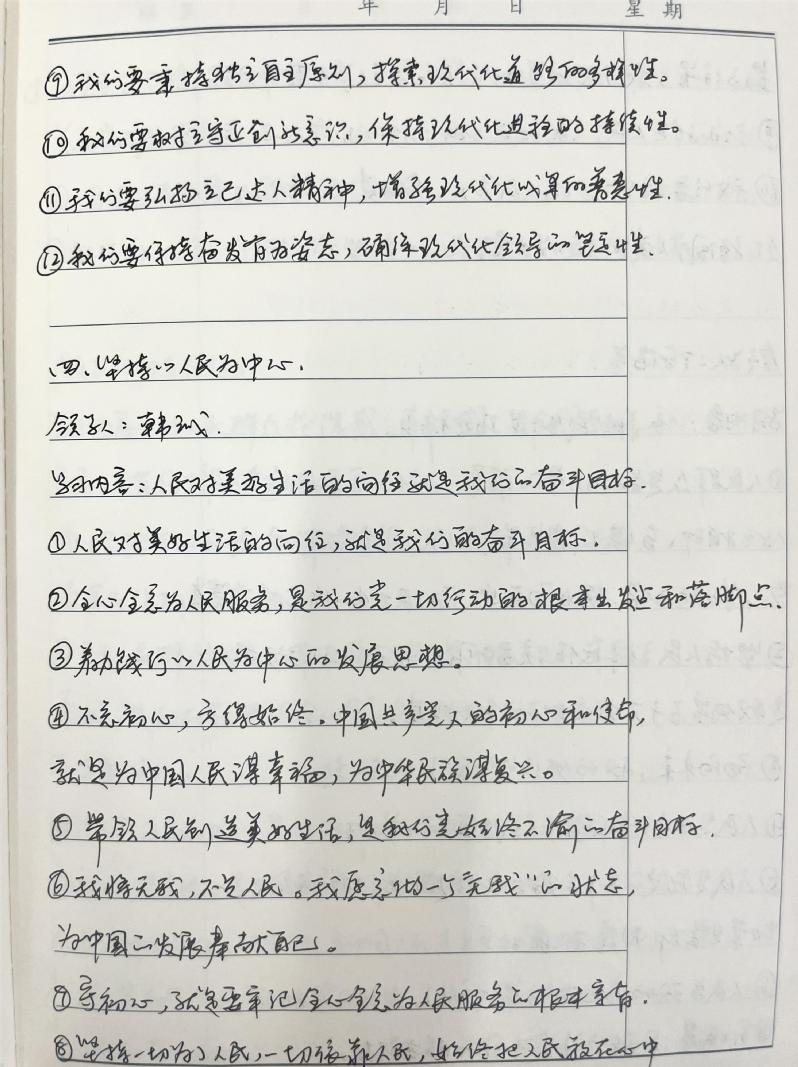 年 月 日 星期
⑨我们要秉持独立自主原则,探索现代化道路的多样性。
⑩我们要树立守正创新意识,保持现代化进程的持续性。
⑪我们要弘扬立己达人精神,增强现代化成果的普惠性.
⑫我们要保持奋发有为姿态,确保现代化领导的坚定性.
四、坚持以人民为中心.
领学人:韩
学习内容:人民对美好生活的向往就是我们的奋斗目标.
①人民对美好生活的向往,就是我们的奋斗目标.
②全心全意为人民服务,是我们党一切行动的根本出发点和落脚点.
③着力践行以人民为中心的发展思想。
④不忘初心,方得始终。中国共产党人的初心和使命,
就是为中国人民谋幸福,为中华民族谋复兴。
⑤带领人民创造美好生活,是我们党始终不渝的奋斗目标.
⑥我将无我,不负人民。我愿意做一个"无我"的状态,
为中国的发展奉献自己。
⑦守初心,就是要牢记全心全意为人民服务的根本宗旨.
⑧坚持一切为了人民,一切依靠人民,始终把人民放在心中